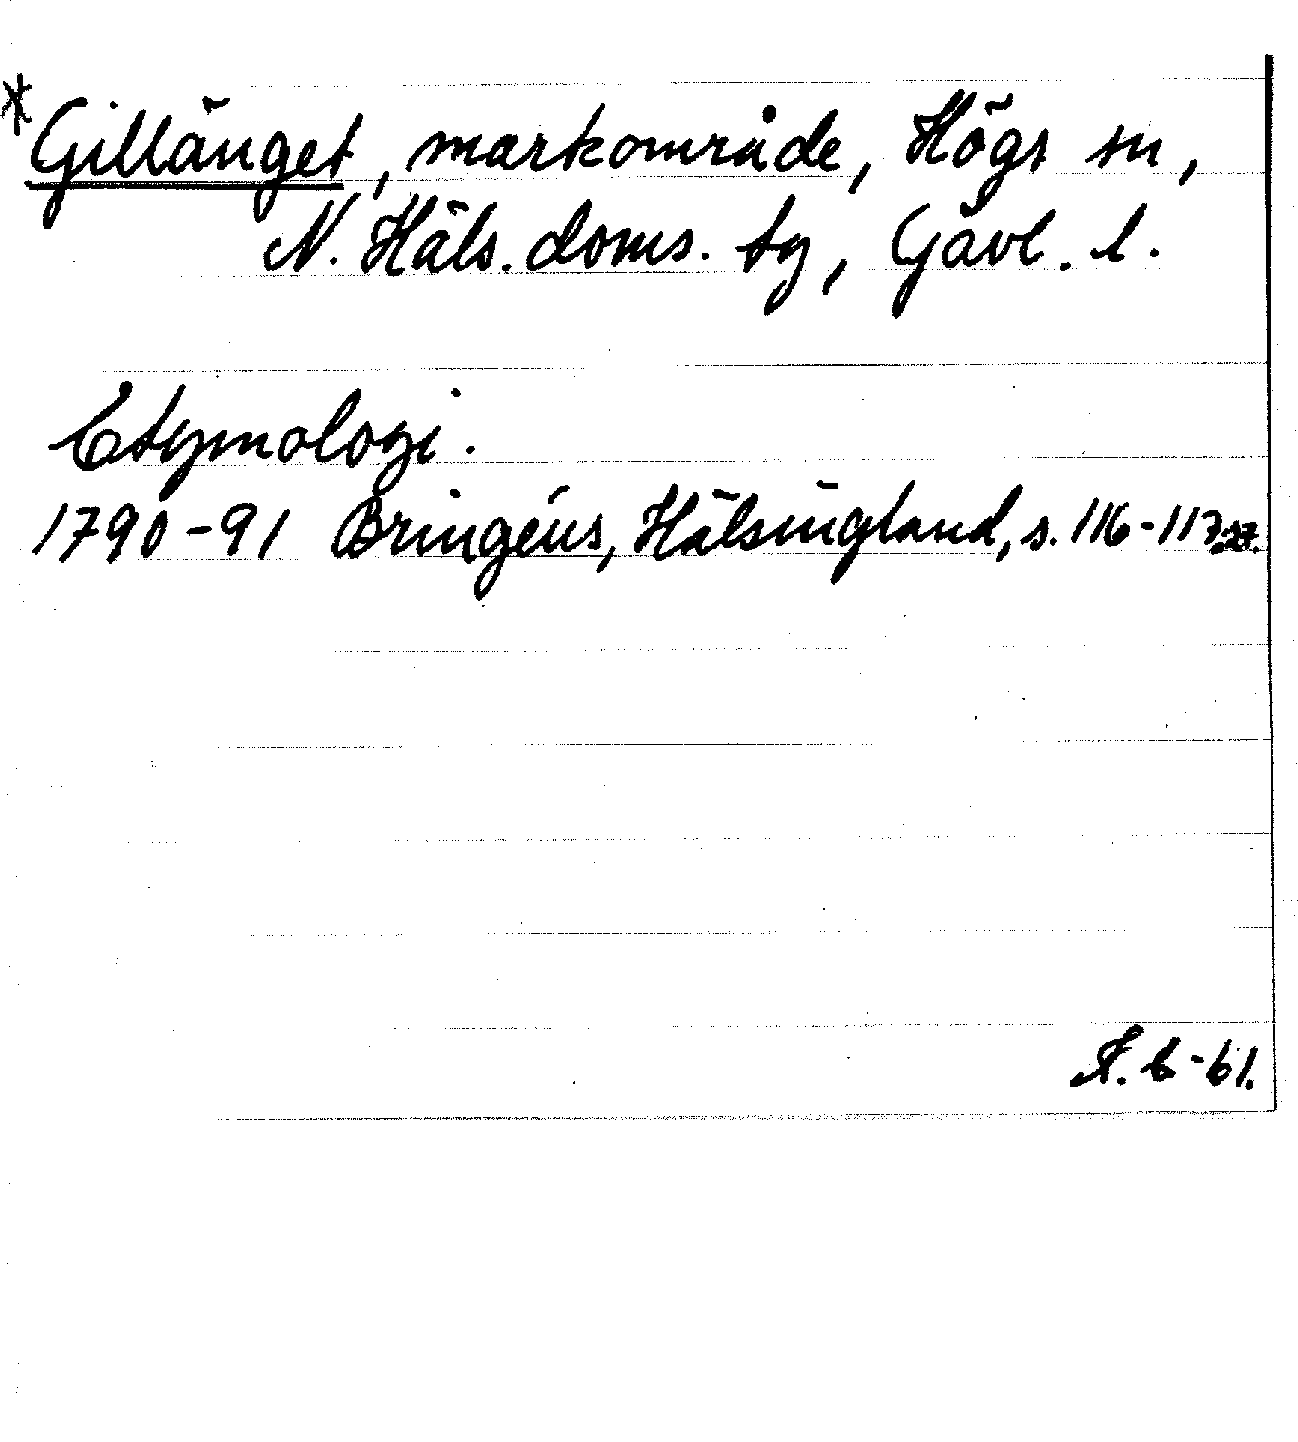 * Gillänget, markområde, Högs sn,
N. Häls. doms. tg, Gävl. l.
Etymologi.
1790-91 Bringéus, Hälsingland, s. 116-117.
F. 6-61.